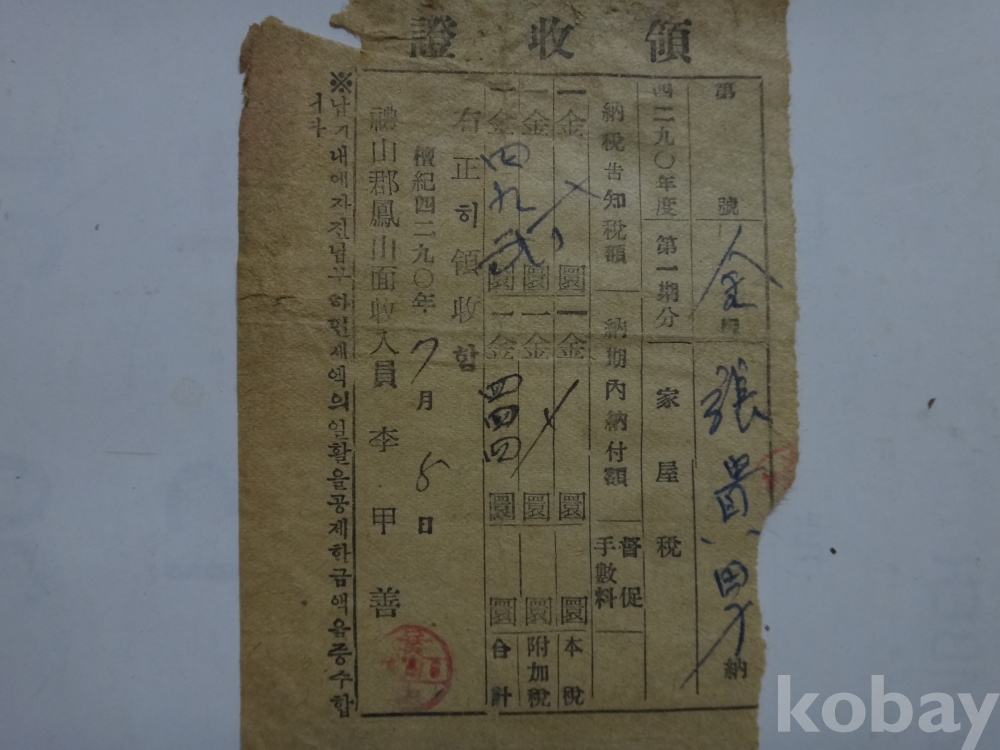 領收證
第 號 金 里 張貴男 納
四二九〇年度 第一期分 家屋稅
納稅告知稅額 納期內納付額 督促手數料
一金 圜 一金 圜 圜 本稅
一金 圜 一金 圜 圜 附加稅
一金 四九弐 圜 一金 四四四 圜 圜 合計
右正히領收함
檀紀四二九〇年 7月 8日
禮山郡鳳山面收入員 李甲善
※납기내에자진납부하면세액의일활을공제한금액을증수합
니다
kobay